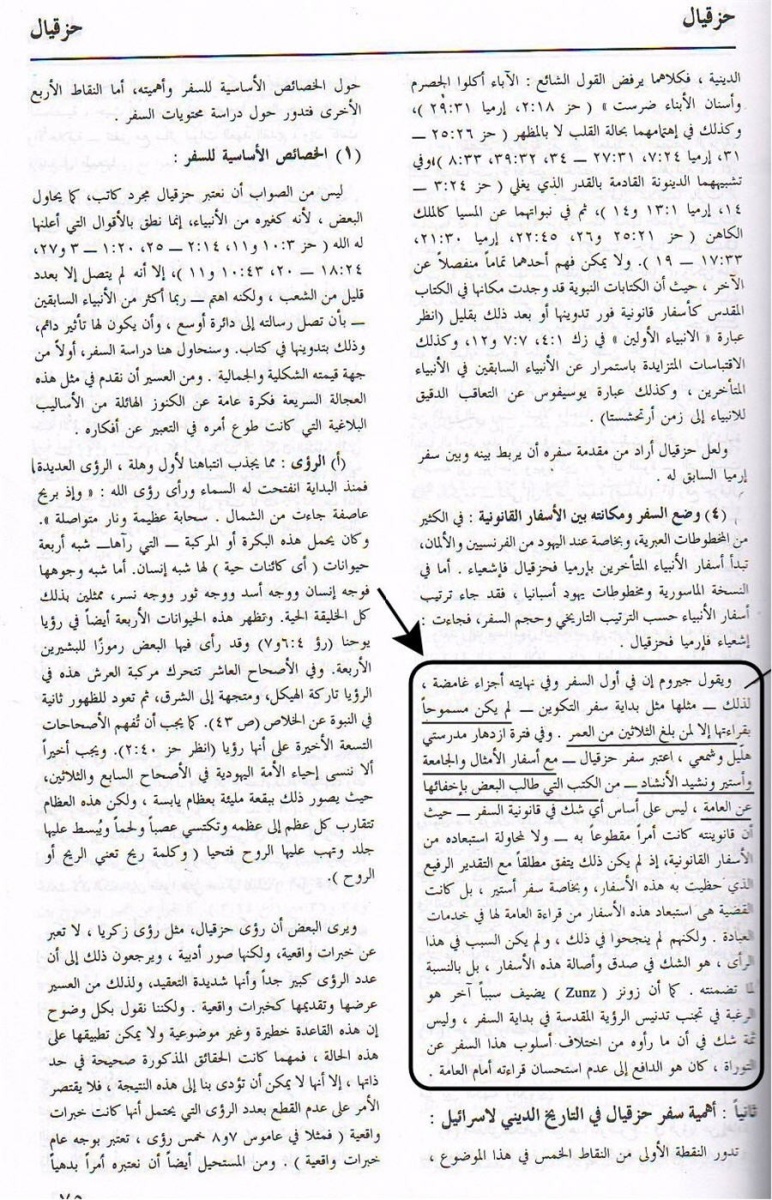 حزقيال
حزقيال
الدينية ، فكلاهما يرفض القول الشائع : الآباء أكلوا الحصرم
وأسنان الأبناء ضرست » ( حز ٢:١٨، إرميا ٢٩:٣١ )،
وكذلك في إهتمامهما بحالة القلب لا بالمظهر ( حز ٢٥:٢٦ ــ
٣١، إرميا ٢٤:٧، ٢٧:٣١ ــ ٣٤، ٣٩:٣٢، ٨:٣٣ )، وفي
تشبيههما الدينونة القادمة بالقدر الذي يغلي ( حز ٣:٢٤ ــ
١٤، إرميا ١٣:١ و١٤ )، ثم في نبواتهما عن المسيا كالملك
الكاهن ( حز ٢٥:٢١ و٢٦، ٢٢:٤٥، إرميا ٢١:٣٠،
١٧:٣٣ ــ ١٩ ). ولا يمكن فهم أحدهما تماماً منفصلاً عن
الآخر ، حيث أن الكتابات النبوية قد وجدت مكانها في الكتاب
المقدس كأسفار قانونية فور تدوينها أو بعد ذلك بقليل (انظر
عبارة « الانبياء الأولين » في زك ٤:١، ٧:٧ و١٢، وكذلك
الاقتباسات المتزايدة باستمرار عن الأنبياء السابقين في الأنبياء
المتأخرين ، وكذلك عبارة يوسيفوس عن التعاقب الدقيق
للانبياء إلى زمن أرتحشستا) .
ولعل حزقيال أراد من مقدمة سفره أن يربط بينه وبين سفر
إرميا السابق له .
(٤) وضع السفر ومكانته بين الأسفار القانونية : في الكثير
من المخطوطات العبرية، وبخاصة عند اليهود من الفرنسيين والألمان،
تبدأ أسفار الأنبياء المتأخرين بإرميا فحزقيال فإشعياء . أما في
النسخة الماسورية ومخطوطات يهود أسبانيا ، فقد جاء ترتيب
أسفار الأنبياء حسب الترتيب التاريخي وحجم السفر، فجاءت :
إشعياء فإرميا فحزقيال .
ويقول جيروم إن في أول السفر وفي نهايته أجزاء غامضة ،
لذلك ــ مثلها مثل بداية سفر التكوين ــ لم يكن مسموحاً
بقراءتها إلا لمن بلغ الثلاثين من العمر . وفي فترة ازدهار مدرستي
هليل وشمعي ، اعتبر سفر حزقيال ــ مع أسفار الأمثال والجامعة
وأستير ونشيد الأنشاد ــ من الكتب التي طالب البعض بإخفائها
عن العامة ، ليس على أساس أي شك في قانونية السفر ــ حيث
أن قانونيته كانت أمراً مقطوعاً به ــ ولا لمحاولة استبعاده من
الأسفار القانونية، إذ لم يكن ذلك يتفق مطلقاً مع التقدير الرفيع
الذي حظيت به هذه الأسفار، وبخاصة سفر أستير ، بل كانت
القضية هى استبعاد هذه الأسفار من قراءة العامة لها في خدمات
العبادة . ولكنهم لم ينجحوا في ذلك ، ولم يكن السبب في هذا
الرأى ، هو الشك في صدق وأصالة هذه الأسفار ، بل بالنسبة
لما تضمنته . كما أن زونز ( Zunz ) يضيف سبباً آخر هو
الرغبة في تجنب تدنيس الرؤية المقدسة في بداية السفر ، وليس
ثمة شك في أن ما رأوه من اختلاف أسلوب هذا السفر عن
التوراة ، كان هو الدافع إلى عدم استحسان قراءته أمام العامة .
ثانياً : أهمية سفر حزقيال في التاريخ الديني لاسرائيل :
تدور النقطة الأولى من النقاط الخمس في هذا الموضوع ،
حول الخصائص الأساسية للسفر وأهميته، أما النقاط الأربع
الأخرى فتدور حول دراسة محتويات السفر .
(١) الخصائص الأساسية للسفر :
ليس من الصواب أن نعتبر حزقيال مجرد كاتب، كما يحاول
البعض ، لأنه كغيره من الأنبياء، إنما نطق بالأقوال التي أعلنها
له الله ( حز ١٠:٣ و١١، ٢:١٤ ــ ٢٥، ١:٢٠ ــ ٣ و٢٧،
١٨:٢٤ ــ ٢٠، ١٠:٤٣ و١١ )، إلا أنه لم يتصل إلا بعدد
قليل من الشعب ، ولكنه اهتم ــ ربما أكثر من الأنبياء السابقين
ــ بأن تصل رسالته إلى دائرة أوسع ، وأن يكون لها تأثير دائم،
وذلك بتدوينها في كتاب. وسنحاول هنا دراسة السفر، أولاً من
جهة قيمته الشكلية والجمالية . ومن العسير أن نقدم في مثل هذه
العجالة السريعة فكرة عامة عن الكنوز الهائلة من الأساليب
البلاغية التي كانت طوع أمره في التعبير عن أفكاره .
(أ) الرؤى : مما يجذب انتباهنا لأول وهلة ، الرؤى العديدة
فمنذ البداية انفتحت له السماء ورأى رؤى الله : « وإذ بريح
عاصفة جاءت من الشمال . سحابة عظيمة ونار متواصلة ».
وكان يحمل هذه البكرة أو المركبة ــ التي رآها ــ شبه أربعة
حيوانات ( أى كائنات حية ) لها شبه إنسان. أما شبه وجوهها
فوجه إنسان ووجه أسد ووجه ثور ووجه نسر، ممثلين بذلك
كل الخليقة الحية. وتظهر هذه الحيوانات الأربعة أيضاً في رؤيا
يوحنا (رؤ ٦:٤ و٧) وقد رأى فيها البعض رموزًا للبشيرين
الأربعة. وفي الأصحاح العاشر تتحرك مركبة العرش هذه في
الرؤيا تاركة الهيكل، ومتجهة إلى الشرق، ثم تعود للظهور ثانية
في النبوة عن الخلاص (ص ٤٣). كما يجب أن تُفهم الأصحاحات
التسعة الأخيرة على أنها رؤيا (انظر حز ٢:٤٠). ويجب أخيراً
ألا ننسى إحياء الأمة اليهودية في الأصحاح السابع والثلاثين،
حيث يصور ذلك ببقعة مليئة بعظام يابسة ، ولكن هذه العظام
تتقارب كل عظم إلى عظمه وتكتسي عصباً ولحماً ويُبسط عليها
جلد وتهب عليها الروح فتحيا ( وكلمة ريح تعني الريح أو
الروح ).
ويرى البعض أن رؤى حزقيال، مثل رؤى زكريا ، لا تعبر
عن خبرات واقعية، ولكنها صور أدبية ، ويرجعون ذلك إلى أن
عدد الرؤى كبير جداً وأنها شديدة التعقيد، ولذلك من العسير
عرضها وتقديمها كخبرات واقعية . ولكننا نقول بكل وضوح
إن هذه القاعدة خطيرة وغير موضوعية ولا يمكن تطبيقها على
هذه الحالة ، فمهما كانت الحقائق المذكورة صحيحة في حد
ذاتها ، إلا أنها لا يمكن أن تؤدى بنا إلى هذه النتيجة ، فلا يقتصر
الأمر على عدم القطع بعدد الرؤى التي يحتمل أنها كانت خبرات
واقعية ( فمثلا في عاموس ٧ و٨ خمس رؤى ، تعتبر بوجه عام
خبرات واقعية ) . ومن المستحيل أيضاً أن نعتبره أمراً بدهياً